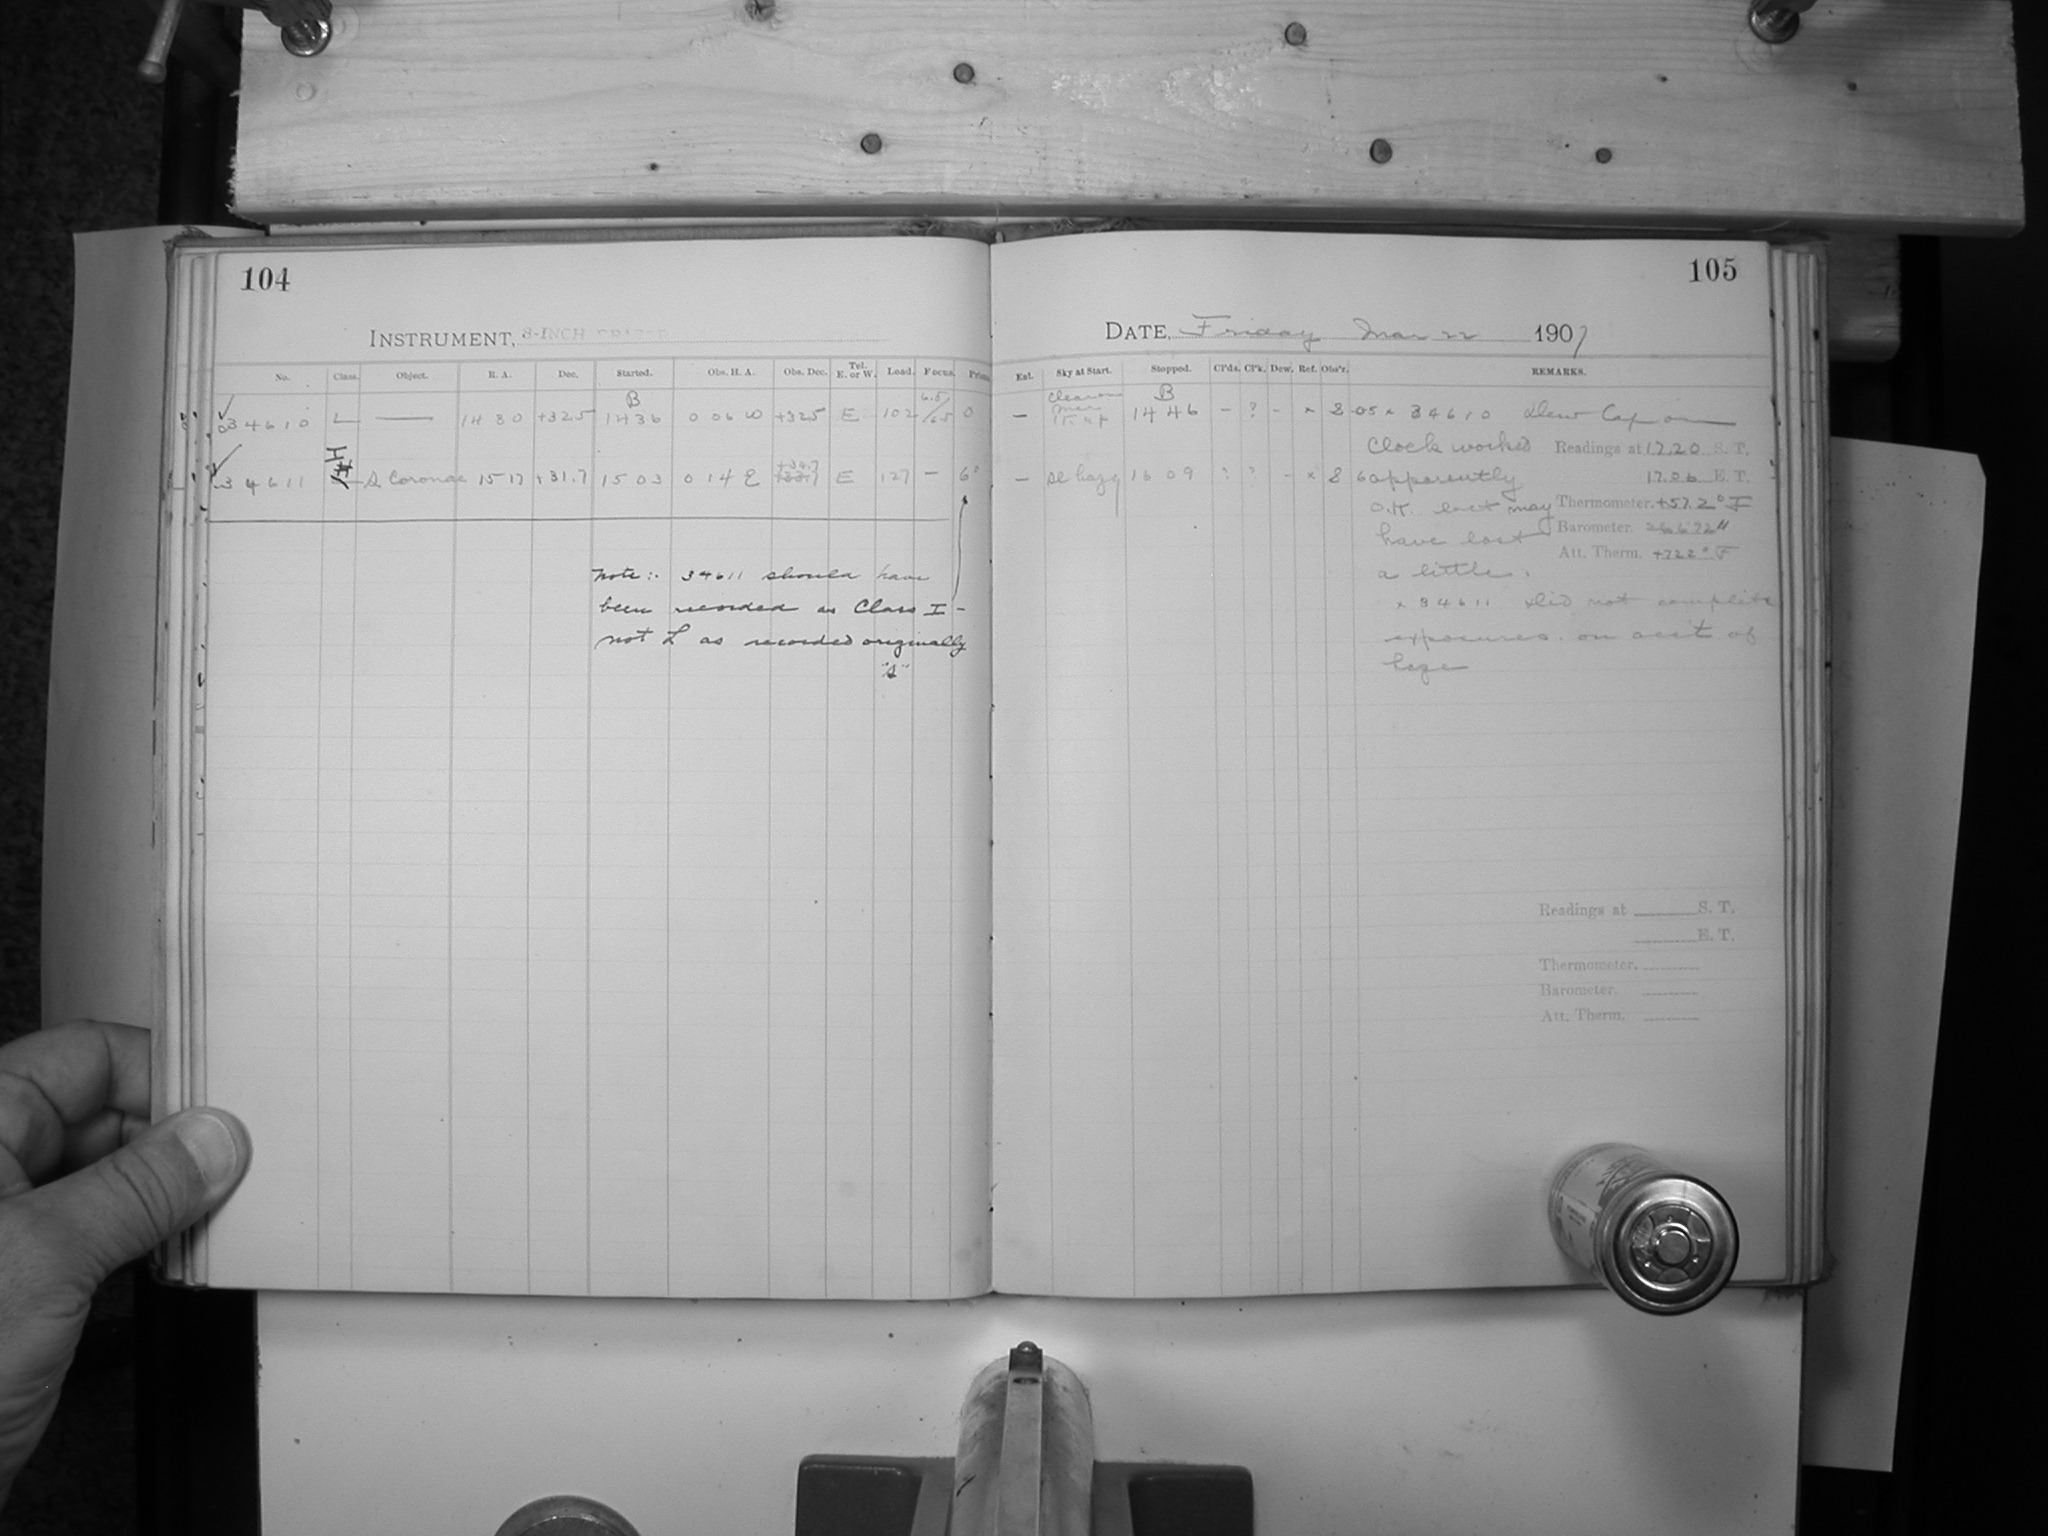 104
INSTRUMENT, 8-INCH
No. Class. Object. R. A. Dec. Started. Obs. H. A. Obs. Dec. Tel. E. or W. Load. Focus. Prism
B
34610 L — 14 30 +32.5 14 36 0 06 W +32.5 E 102 6.5/65 0
I
34611 S Coronae 15 17 +31.7 15 03 0 14 E +31.7 E 127 — 6°
Note:- 34611 should have
been recorded as Class I -
not L as recorded originally
"S"
105
DATE, Friday Mar 22 1907
Est. Sky at Start. Stopped. Cl'ds. Cl'k. Dew. Ref. Obs'r. REMARKS.
B
— 14 46 - ? - x 8 05 x 34610 Dew Cap on
Clock worked Readings at 17.20 S. T.
— sl hazy 16 09 ? ? - x 8 6 apparently 17.06 E. T.
O.K. but may Thermometer. +57.2° F
have lost Barometer. 26.672"
a little. Att. Therm. +72.2° F
x 34611 Did not complete
exposures. on acct of
haze
Readings at S. T.
E. T.
Thermometer.
Barometer.
Att. Therm.